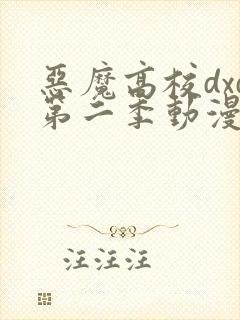 惡魔高校dxd
第二季動漫
汪汪汪